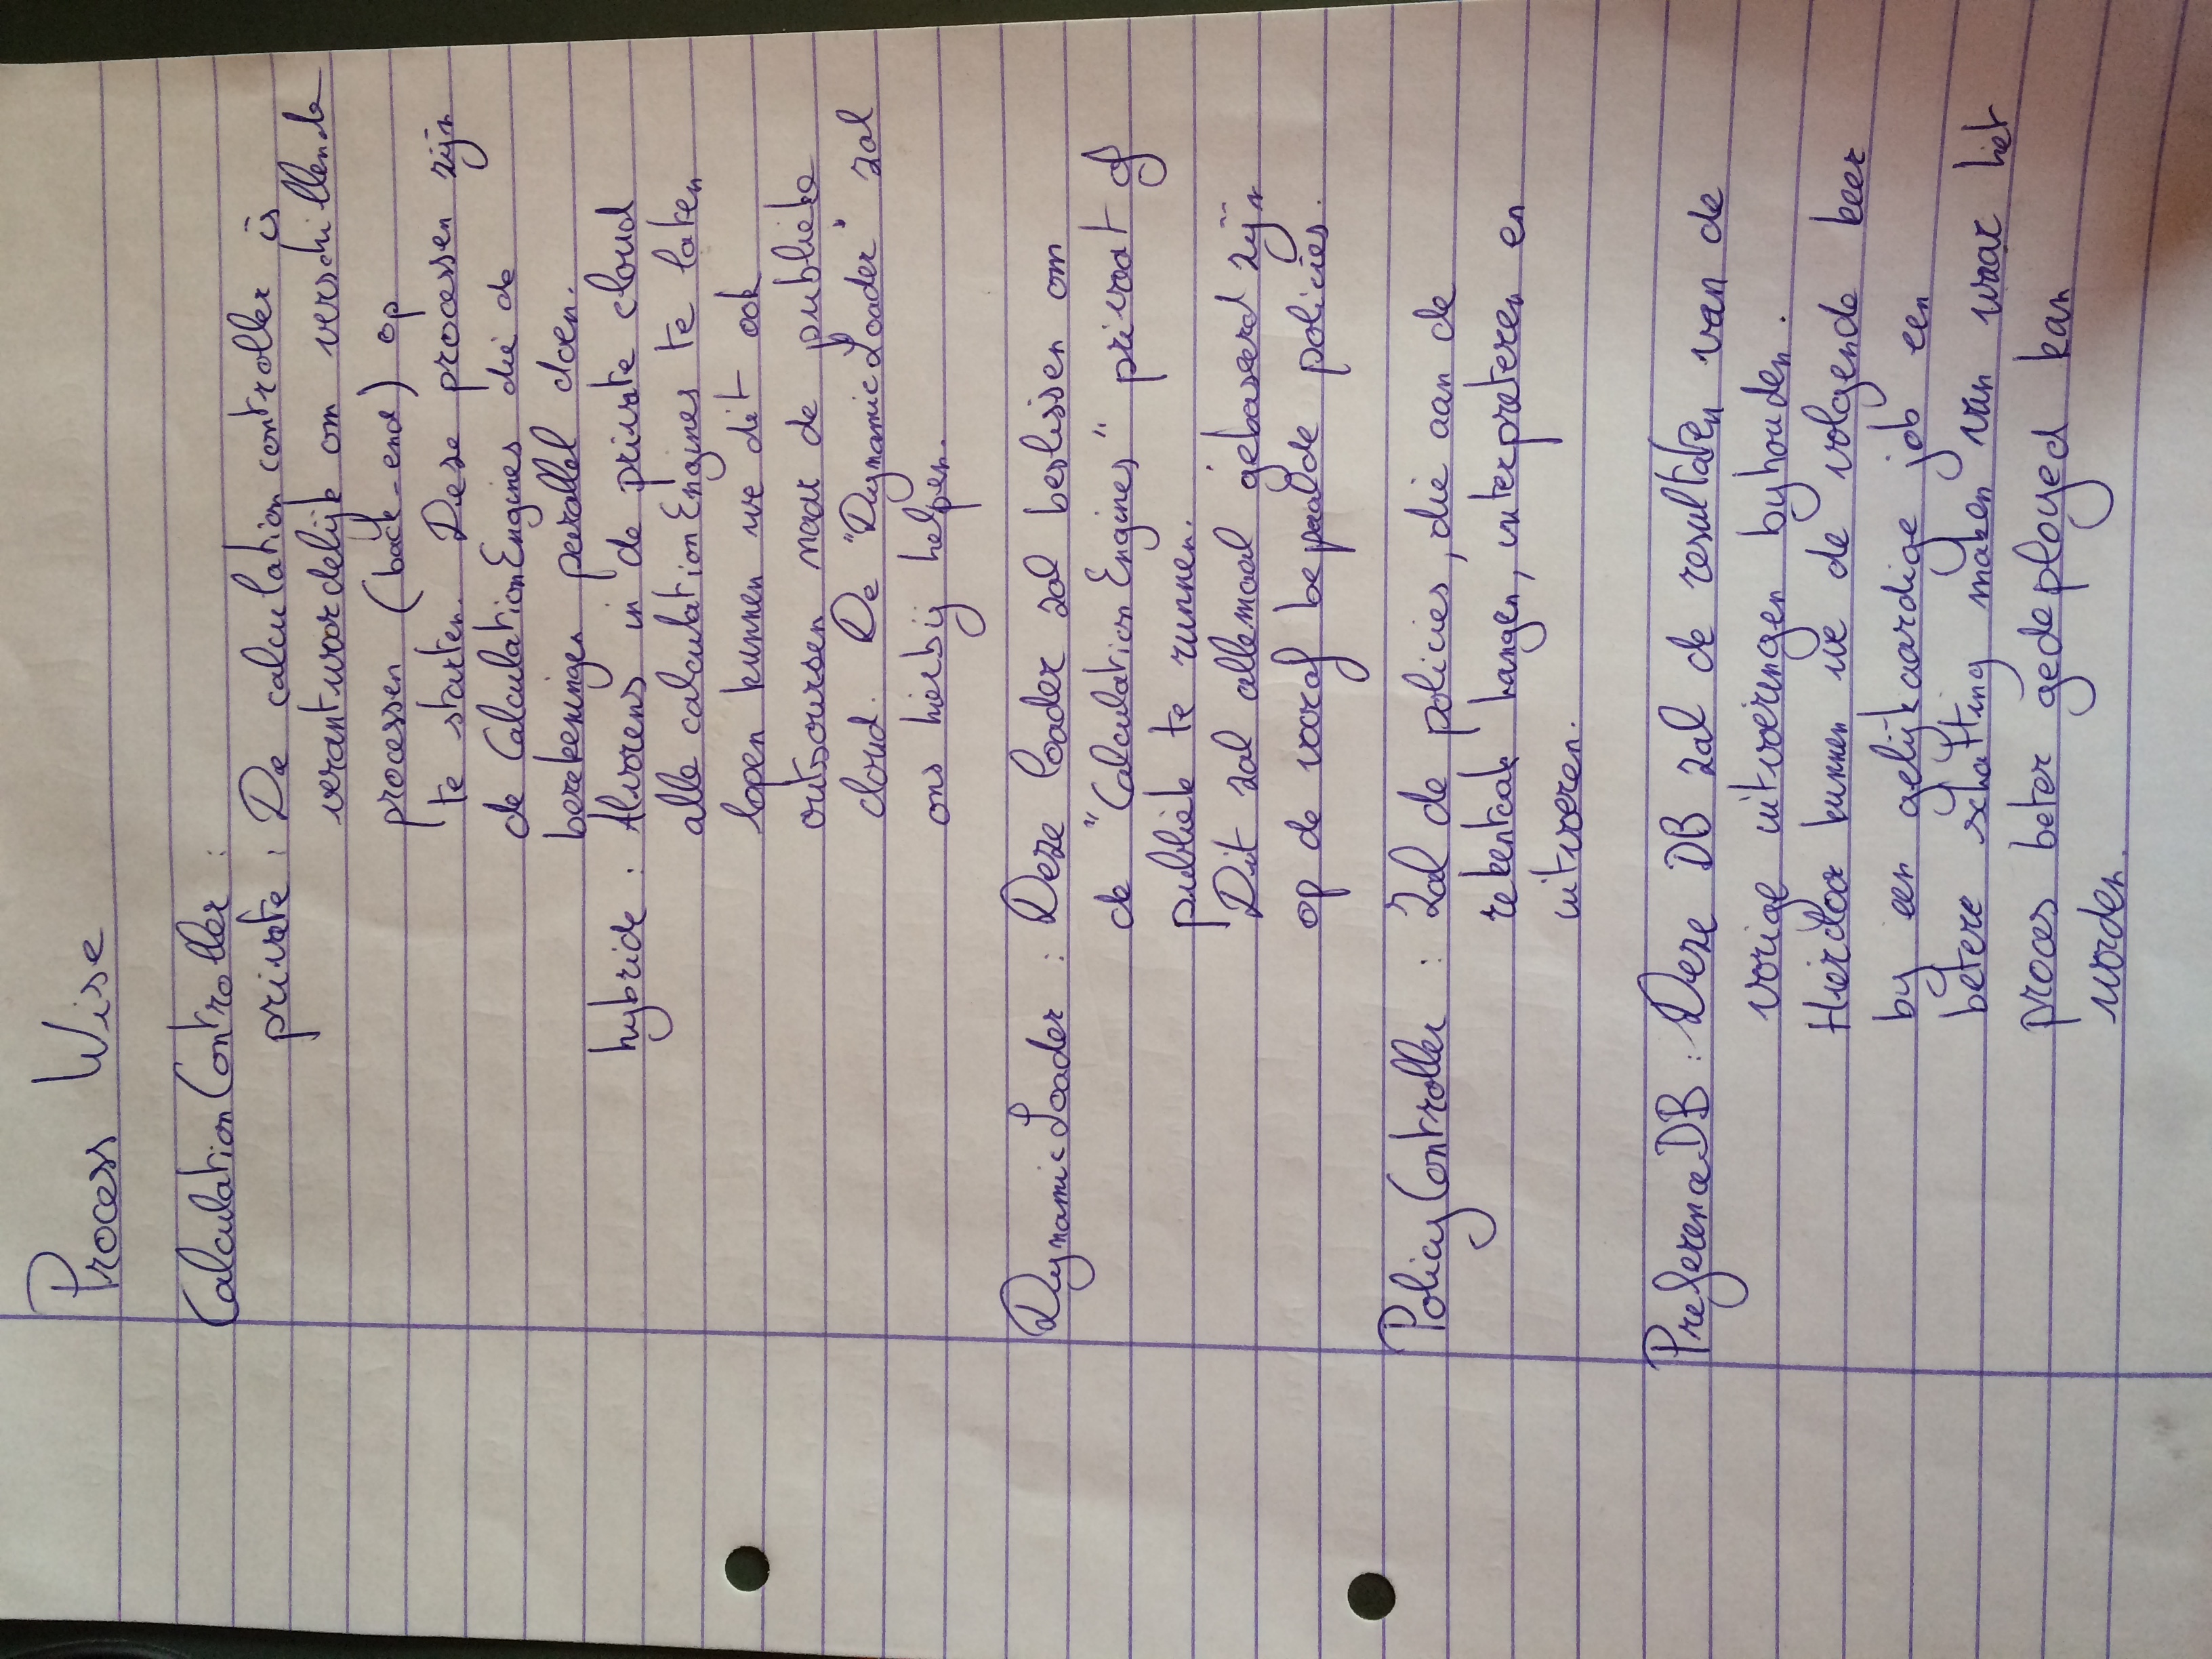 Process Wise
CalculationController :
private : De calculation controller is
verantwoordelijk om verschillende
processen (back-end) op
te starten. Deze processen zijn
de CalculationEngines die de
berekeningen parallel doen.
hybride : Alvorens in de private cloud
alle calculationEngines te laten
lopen kunnen we dit ook
outsoursen naar de publieke
cloud. De "DynamicLoader" zal
ons hierbij helpen.
DynamicLoader : Deze loader zal beslissen om
de "CalculationEngines" privaat of
publiek te runnen.
Dit zal allemaal gebaseerd zijn
op de vooraf bepaalde policies.
PolicyController : Zal de policies, die aan de
rekentaak hangen, interpreteren en
uitvoeren.
PreferenceDB : Deze DB zal de resultaten van de
vorige uitvoeringen byhouden.
Hierdoor kunnen we de volgende keer
by een gelijkaardige job een
betere schatting maken van waar het
proces beter gedeployed kan
worden.